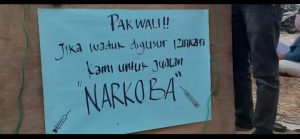 PAKWALI!!
Jika waduk digusur izinkan
kami untuk jualan
"NARKOBA"